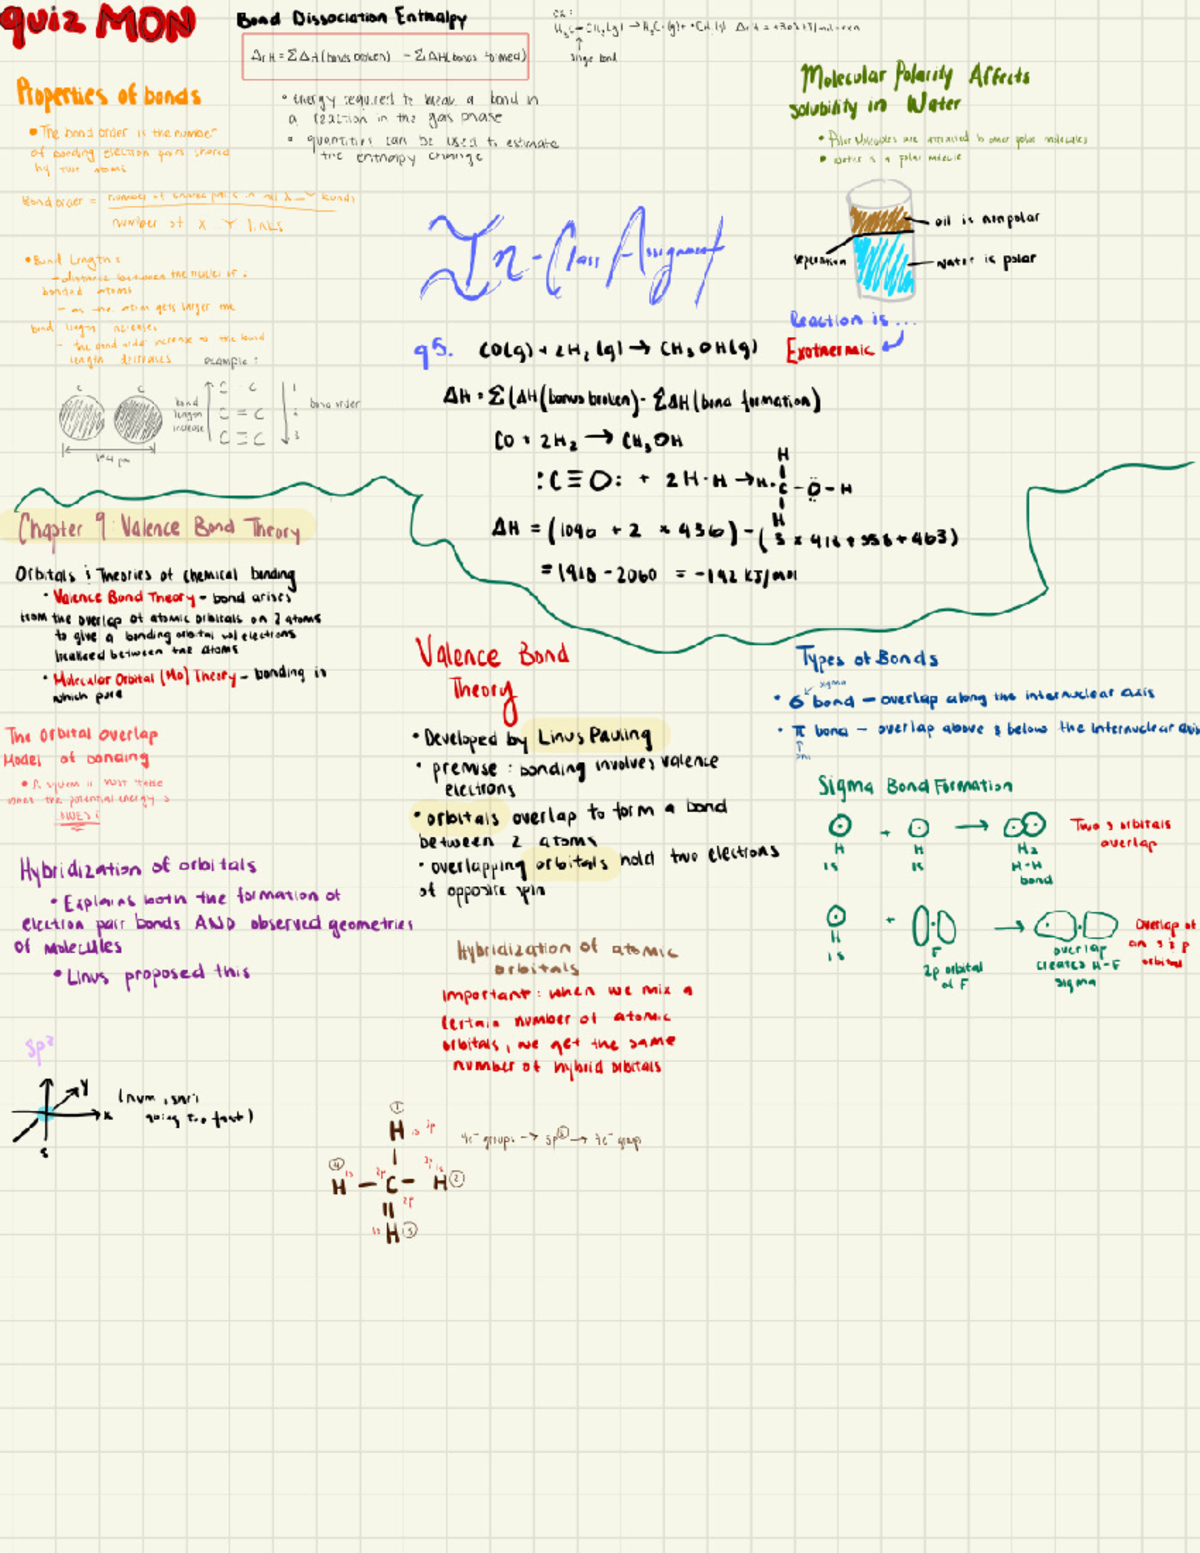 quiz MON
Bond Dissociation Enthalpy
ΔrH = ΣΔH(bonds broken) - ΣΔH(bonds formed)
• energy required to break a bond in
a reaction in the gas phase
• quantities can be used to estimate
the enthalpy change
single bond
Properties of bonds
• The bond order is the number
of bonding electron pairs shared
by two atoms
Bond order = number of shared pairs in all X-Y bonds
number of X-Y links
• Bond Lengths
- distance between the nuclei of 2
bonded atoms
- as the atom gets larger the
bond length increases
- the bond order increase so the bond
length decreases
example:
C C
bond
length
increase
C - C
C = C
C ≡ C
1
2
3
bond order
154 pm
Molecular Polarity Affects
Solubility in Water
• Polar Molecules are attracted to other polar molecules
• water is a polar molecule
oil is nonpolar
separation
water is polar
In-Class Assignment
Reaction is...
Exothermic
95. CO(g) + 2H₂(g) → CH₃OH(g)
ΔH = Σ(ΔH(bonds broken) - ΣΔH(bond formation)
CO + 2H₂ → CH₃OH
H
:C≡O: + 2H-H → H-C-Ö-H
H
ΔH = (1046 + 2 × 436) - (3 × 416 + 358 + 463)
= 1918 - 2060 = -142 KJ/mol
Chapter 9: Valence Bond Theory
Orbitals & Theories of chemical bonding
• Valence Bond Theory - bond arises
from the overlap of atomic orbitals on 2 atoms
to give a bonding orbital w/ electrons
localized between the atoms
• Molecular Orbital (Mo) Theory - bonding in
which pure
The orbital overlap
Model of bonding
• A system is most stable
when the potential energy is
LOWEST
Hybridization of orbitals
• Explains both the formation of
electron pair bonds AND observed geometries
of Molecules
• Linus proposed this
Valence Bond
Theory
• Developed by Linus Pauling
• premise: bonding involves valence
electrons
• orbitals overlap to form a bond
between 2 atoms
• overlapping orbitals hold two electrons
of opposite spin
Hybridization of atomic
orbitals
Important: when we mix a
certain number of atomic
orbitals, we get the same
number of hybrid orbitals
Types of Bonds
sigma
• σ bond - overlap along the internuclear axis
• π bond - overlap above & below the internuclear axis
Sigma Bond Formation
+ →
H H H₂
1s 1s H-H
bond
Two s orbitals
overlap
+ →
H F overlap
1s 2p orbital creates H-F
of F sigma
Overlap of
an s & p
orbital
sp²
y
x
s
going too fast)
①
H 1s 2p
④
H 1s 2p C 2p 1s H ②
2p
1s H ③
4e⁻ groups → sp³ → 4e⁻ groups